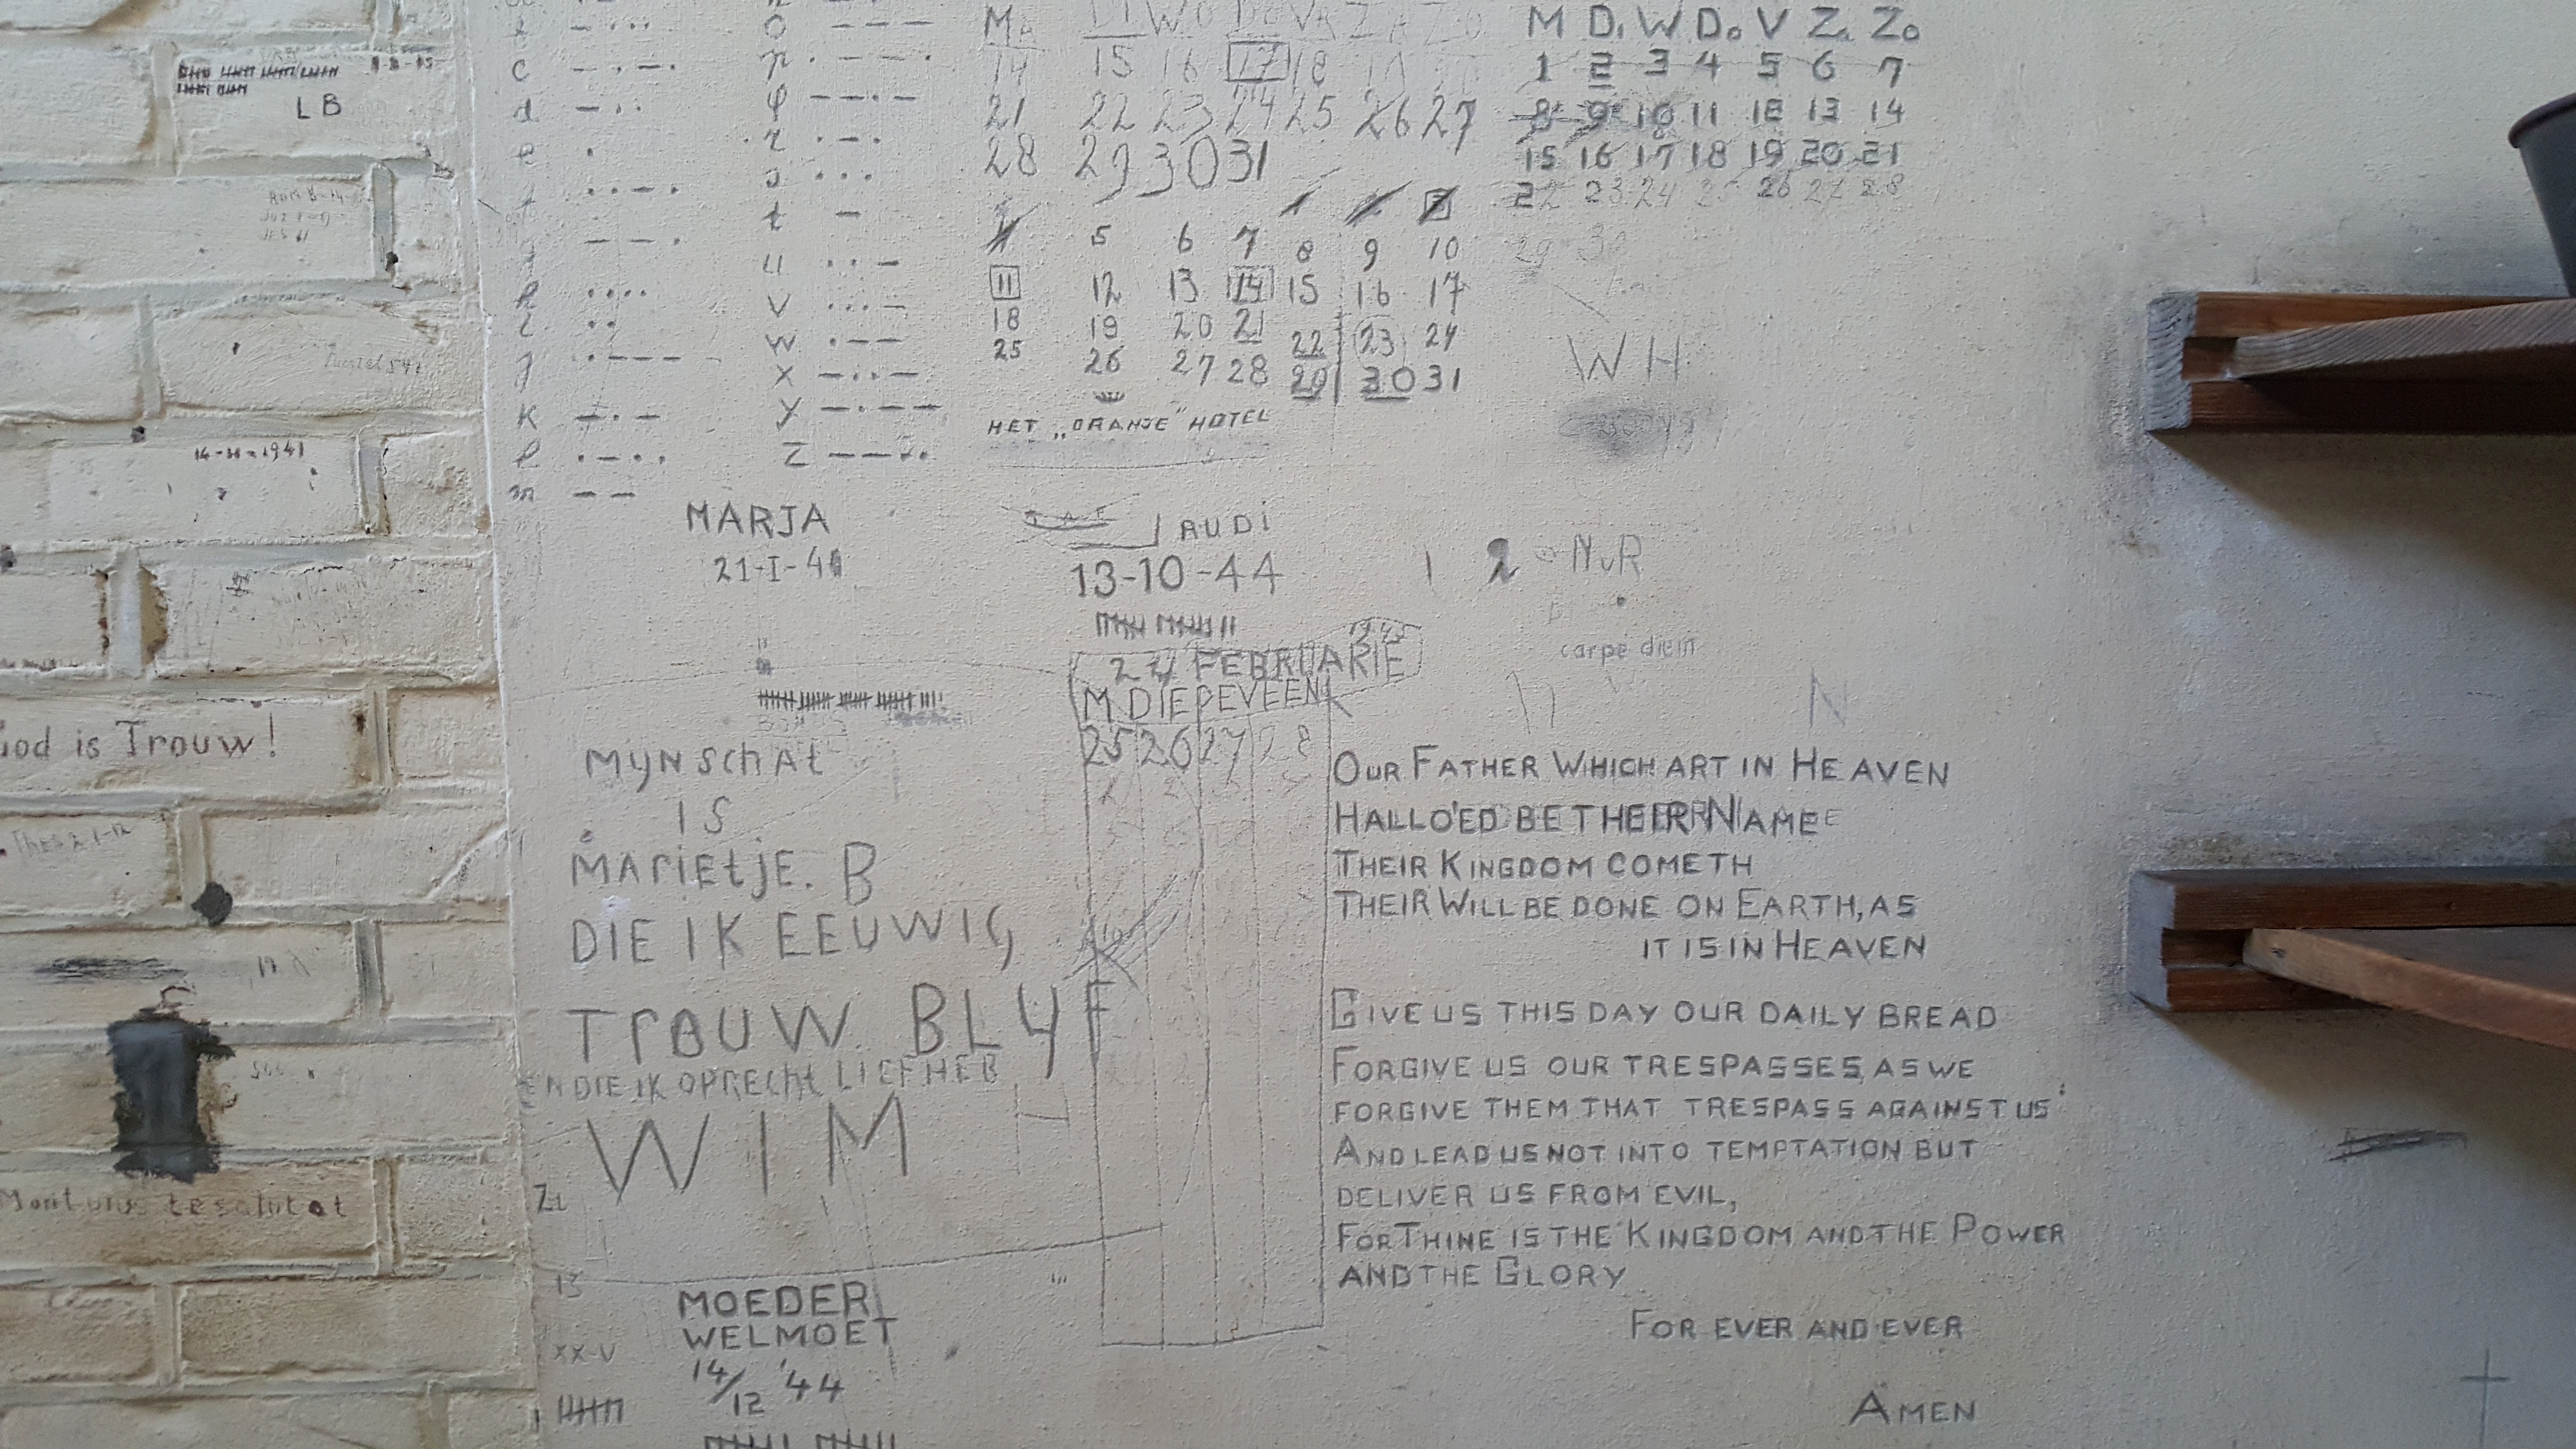 LB
14-11-1941
God is Trouw!
te salutat
c — · — ·
d — · ·
e ·
h · · · ·
i · ·
j · — — —
k — · —
l · — · ·
m — —
o — — —
p · — — ·
q — — · —
r · — ·
s · · ·
t —
u · · —
v · · · —
w · — —
x — · · —
y — · — —
z — — · ·
MA DI WO DO VR ZA ZO
14 15 16 17 18
21 22 23 24 25 26 27
28 29 30 31
5 6 7 8 9 10
11 12 13 14 15 16 17
18 19 20 21 22 23 24
25 26 27 28 29 30 31
HET „ORANJE" HOTEL
M Di W Do V Za Zo
1 2 3 4 5 6 7
8 9 10 11 12 13 14
15 16 17 18 19 20 21
22 23 24 26 27 28
29 30
WH
MARJA
21-I-41
AUDi
13-10-44
1 2 NvR
carpe diem
1945
24 FEBRUARIE
M DIEPEVEEN
25 26 27 28
N
MyN SCHAt
IS
MARIEtJE. B
DIE IK EEUWIG
TROUW BLYF
EN DIE IK OPRECHt LIEFHEB
WIM
MOEDER
WELMOET
14/12 '44
XX-V
OUR FATHER WHICH ART IN HEAVEN
HALLO'ED BE THEIR NAME
THEIR KINGDOM COMETH
THEIR WILL BE DONE ON EARTH, AS
IT IS IN HEAVEN
GIVE US THIS DAY OUR DAILY BREAD
FORGIVE US OUR TRESPASSES, AS WE
FORGIVE THEM THAT TRESPASS AGAINST US
AND LEAD US NOT INTO TEMPTATION BUT
DELIVER US FROM EVIL,
FOR THINE IS THE KINGDOM AND THE POWER
AND THE GLORY
FOR EVER AND EVER
AMEN